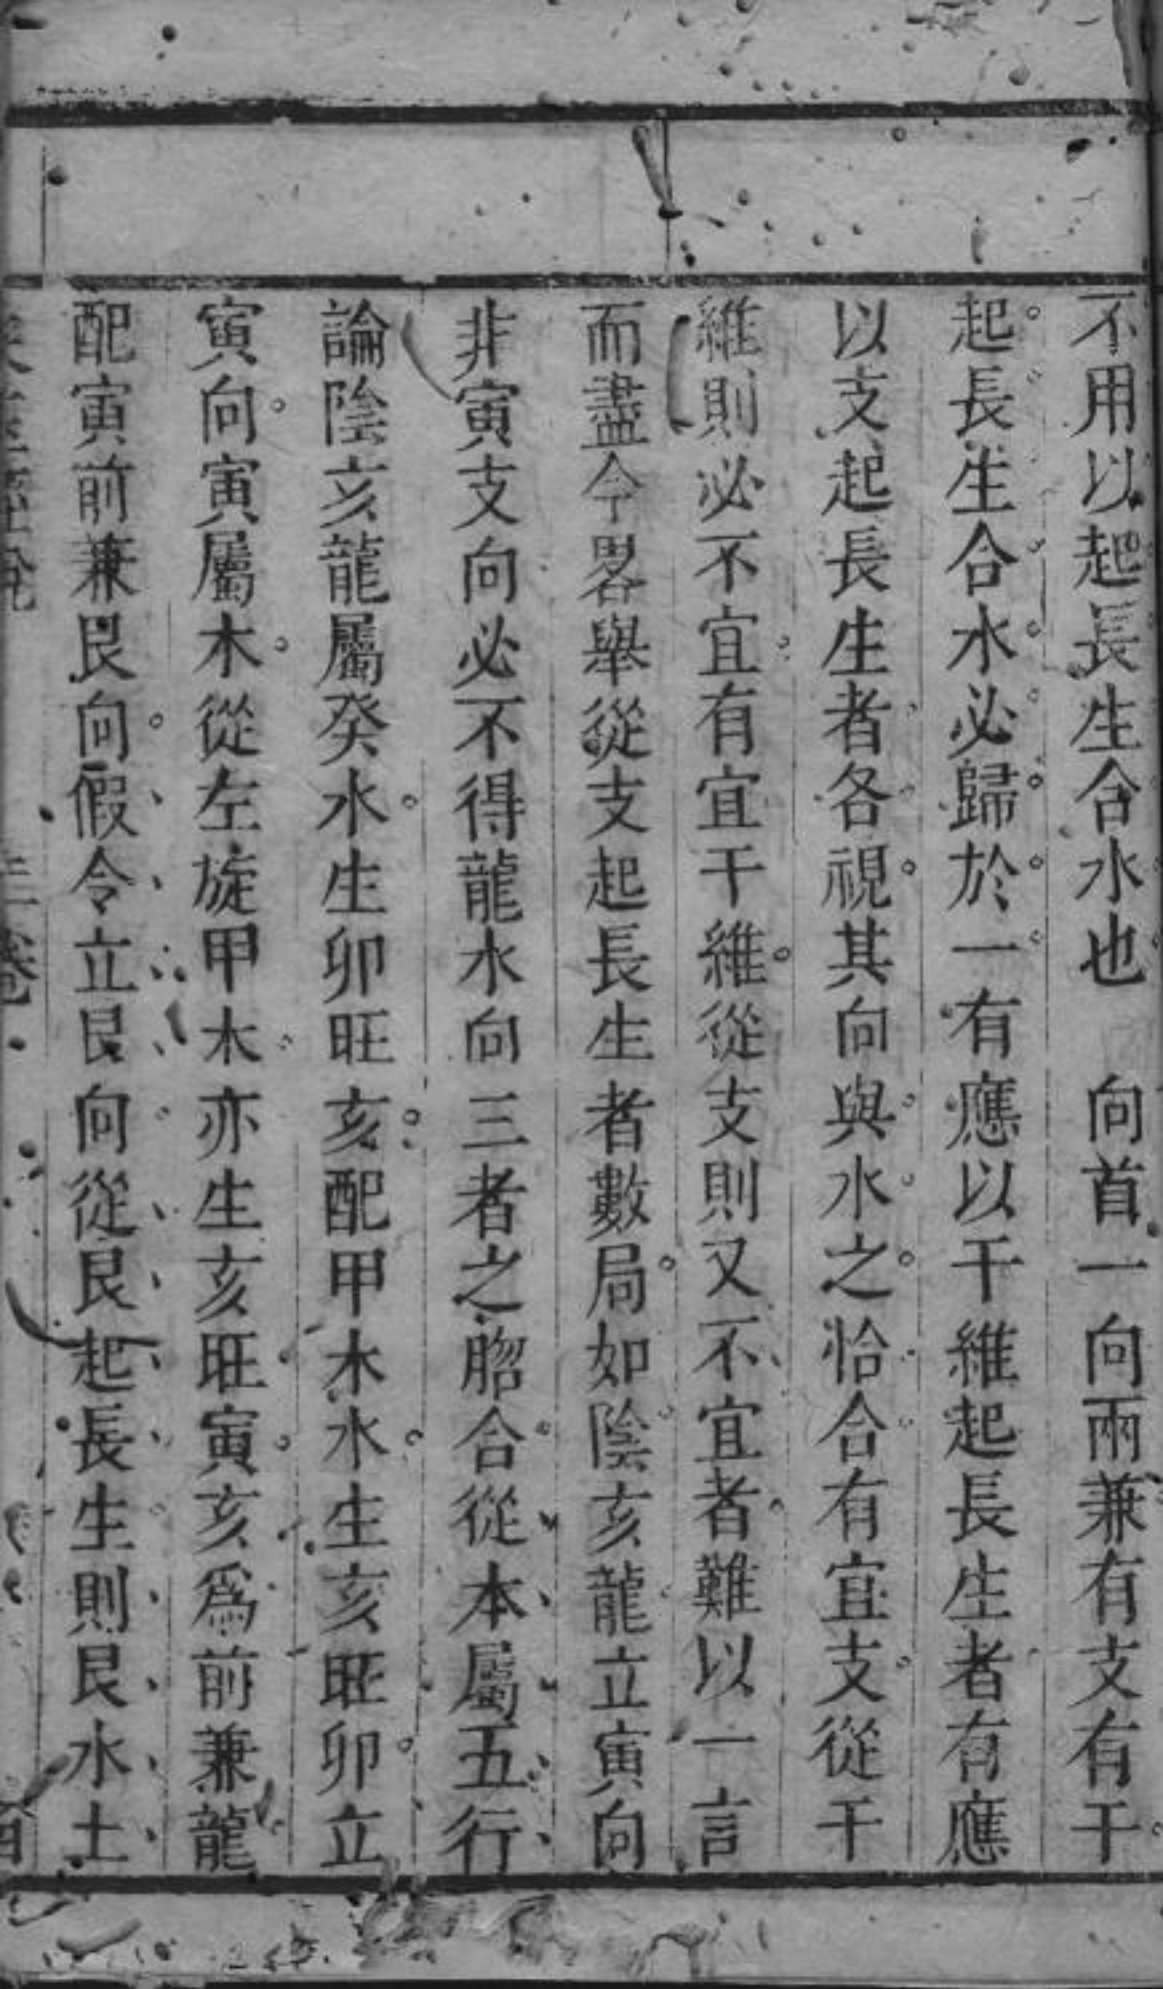 不用以起長生合水也　向首一向兩兼有支有干
起長生合水必歸於一有應以干維起長生者有應
以支起長生者各視其向與水之恰合有宜支從干
維則必不宜有宜干維從支則又不宜者難以一言
而盡今畧舉從支起長生者數局如陰亥龍立寅向
非寅支向必不得龍水向三者之脗合從本屬五行
論陰亥龍屬癸水生卯旺亥配甲木水生亥旺卯立
寅向寅屬木從左旋甲木亦生亥旺寅亥爲前兼龍
配寅前兼艮向假令立艮向從艮起長生則艮水土
三卷